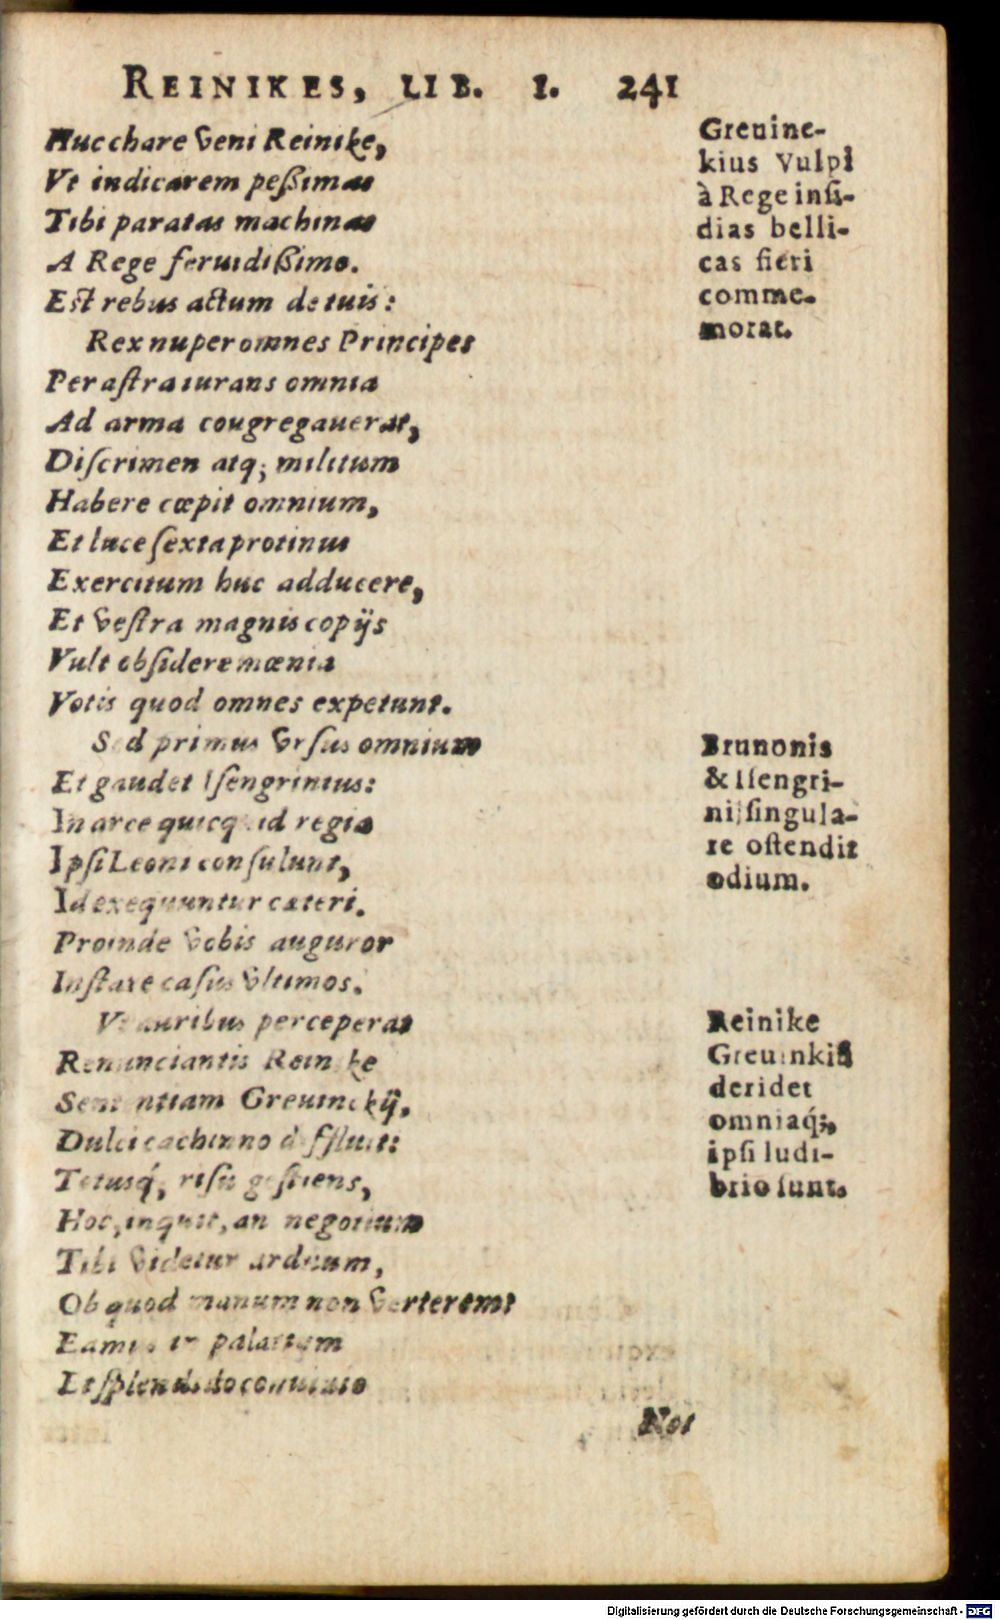 REINIKES, LIB. I. 241
Huc chare veni Reinike,
Vt indicarem peßimas
Tibi paratas machinas
A Rege feruidißimo.
Est rebus actum de tuis:
Rex nuper omnes Principes
Per astra iurans omnia
Ad arma cougregauerat,
Discrimen atq; militum
Habere cœpit omnium,
Et luce sexta protinus
Exercitum huc adducere,
Et vestra magnis copijs
Vult obsidere mœnia
Votis quod omnes expetunt.
Sed primus Vrsus omnium
Et gaudet Isengrinius:
In arce quicquid regia
Ipsi Leoni consulunt,
Id exequuntur cæteri.
Proinde vobis auguror
Instare casus vltimos.
Vt auribus perceperat
Renunciantis Reinike
Sententiam Greuinckij,
Dulci cachinno diffluit:
Totusq́; risu gestiens,
Hoc, inquit, an negotium
Tibi videtur arduum,
Ob quod manum non verterem?
Eamus in palatium
Et splendido conuiuio
Greuine-
kius Vulpi
à Rege insi-
dias belli-
cas fieri
comme-
morat.
Brunonis
& Isengri-
nij singula-
re ostendit
odium.
Reinike
Greuinkij
deridet
omniaq́;,
ipsi ludi-
brio sunt.
Nos
Digitalisierung gefördert durch die Deutsche Forschungsgemeinschaft - DFG